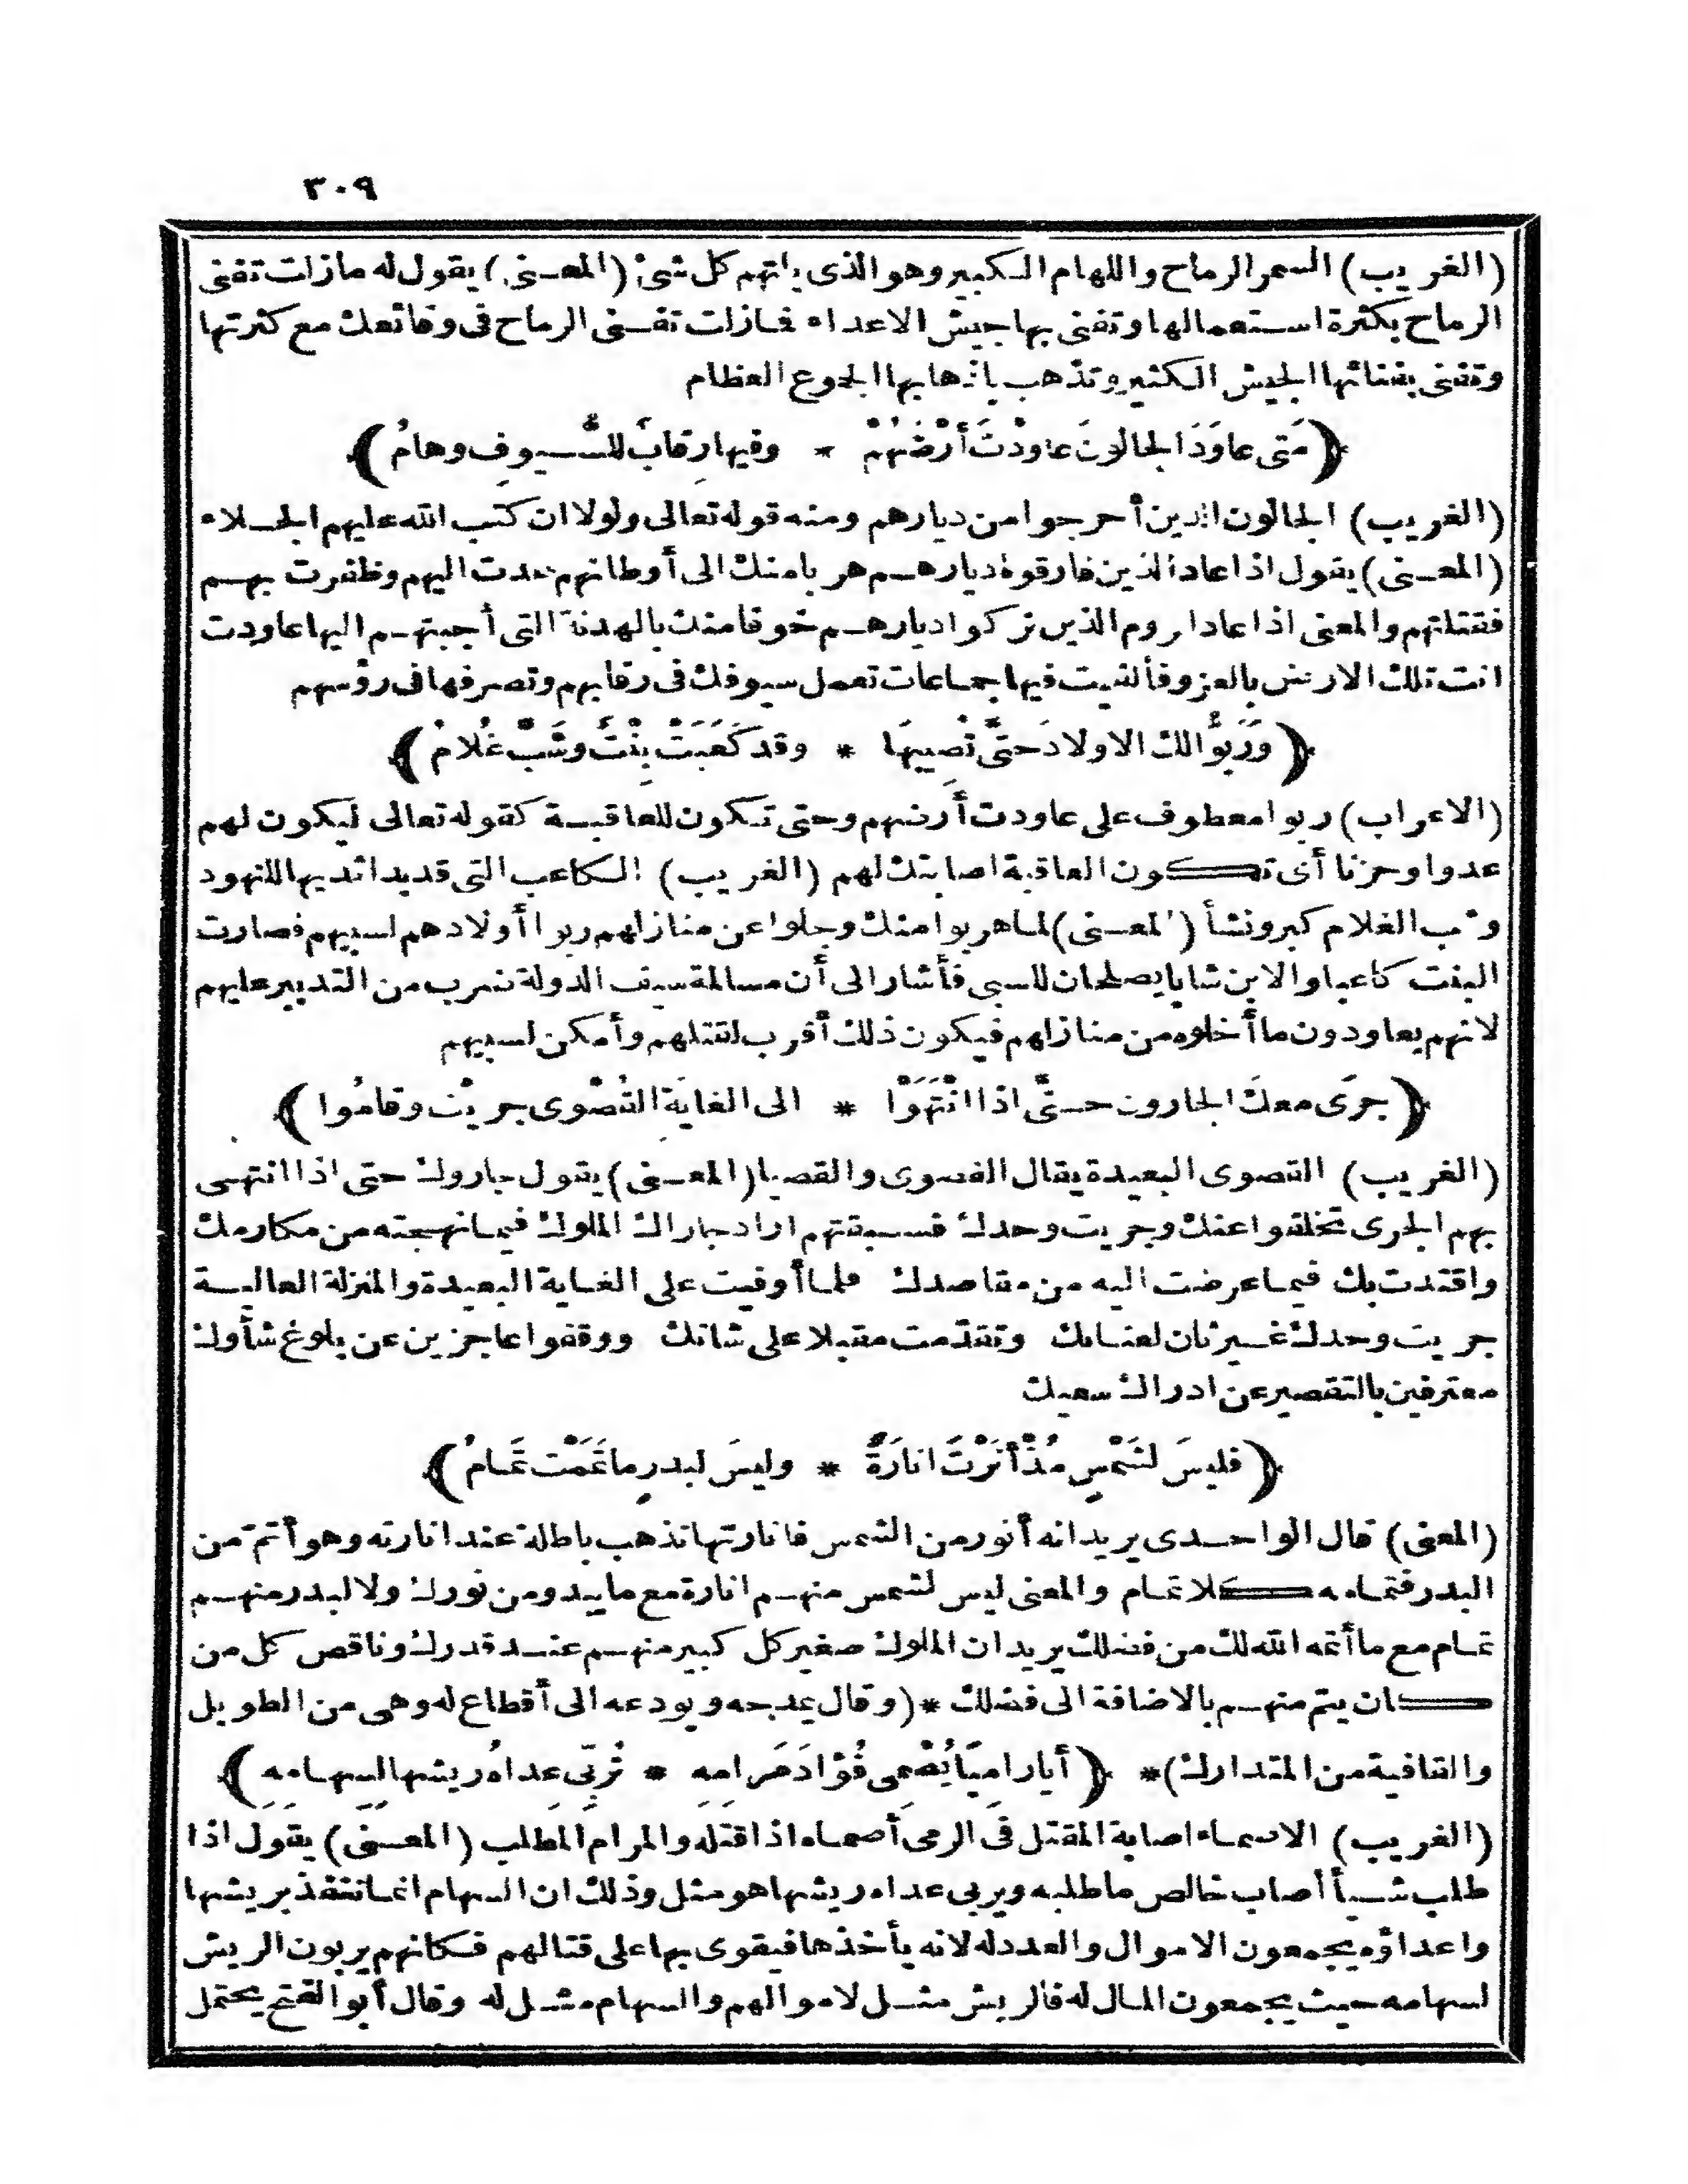 ٣٠٩
(الغريب) السمر الرماح واللهام الكبير وهو الذى يلتهم كل شئ (المعنى) يقول له ما زلت تفنى
الرماح بكثرة استعمالها وتفنى بها جيش الاعداء فما زلت تفنى الرماح فى وقائعك مع كثرتها
وتفنى بفنائها الجيش الكثير وتذهب باذهابها الجموع العظام
﴿مَتى عاوَدَ الجالونَ عاودْتَ أَرْضَهُمْ * وفيها رِقابٌ للسُّيوفِ وهامُ﴾
(الغريب) الجالون الذين أخرجوا من ديارهم ومنه قوله تعالى ولولا ان كتب الله عليهم الجلاء
(المعنى) يقول اذا عاد الذين فارقوا ديارهم هربا منك الى أوطانهم عدت اليهم وظفرت بهم
فقتلتهم والمعنى اذا عاد الروم الذين تركوا ديارهم خوفا منك بالهدنة التى أجبتهم اليها عاودت
انت تلك الارض بالعز وفألفيت فيها جماعات تعمل سيوفك فى رقابهم وتصرفها فى رؤسهم
﴿ورَبَّوْا لك الاولادَ حتَّى تُصيبَها * وقد كَعَبَتْ بِنْتٌ وشَبَّ غُلامُ﴾
(الاعراب) ربوا معطوف على عاودت أرضهم وحتى تكون للعاقبة كقوله تعالى ليكون لهم
عدوا وحزنا أى تكون العاقبة اصابتك لهم (الغريب) الكاعب التى قد بدا ثديها للنهود
وشب الغلام كبر ونشأ (المعنى) لما هربوا منك وجلوا عن منازلهم ربوا أولادهم لسبيهم فصارت
البنت كاعبا والابن شابا يصلحان للسبى فأشار الى أن مسالمة سيف الدولة ضرب من التدبير عليهم
لانهم يعاودون ما أخلوه من منازلهم فيكون ذلك أقرب لقتلهم وأمكن لسبيهم
﴿جرَى معكَ الجارون حتَّى اذا انْتَهَوْا * الى الغايَةِ القُصْوى جريْتَ وقامُوا﴾
(الغريب) القصوى البعيدة يقال القصوى والقصيا (المعنى) يقول جاروك حتى اذا انتهى
بهم الجرى تخلفوا عنك وجريت وحدك فسبقتهم اراد جاراك الملوك فيما نهجته من مكارمك
واقتدت بك فيما عرضت اليه من مقاصدك فلما أوفيت على الغاية البعيدة والمنزلة العالية
جريت وحدك غير ثان لعنانك وتقدّمت مقبلا على شانك ووقفوا عاجزين عن بلوغ شأوك
معترفين بالتقصير عن ادراك سعيك
﴿فليسَ لشَمْسٍ مُذْ أَنَرْتَ انارَةٌ * وليسَ لبدرٍ مذ تَمَمْتَ تَمامُ﴾
(المعنى) قال الواحدى يريد انه أنور من الشمس فانارتها تذهب باطلة عند انارته وهو أتمّ من
البدر فتمامه كلا تمام والمعنى ليس لشمس منهم انارة مع ما يبدو من نورك ولا لبدر منهم
تمام مع ما أتمه الله لك من فضلك يريد ان الملوك صغير كل كبير منهم عند قدرك وناقص كل من
كان يتم منهم بالاضافة الى فضلك *(وقال يمدحه ويودعه الى أقطاع له وهى من الطويل
والقافية من المتدارك)* ﴿أيا رامِيًا يُصْمِى فُؤادَ مَرامِهِ * تُرَبِّى عِداهُ رِيشَها لِسِهامِهِ﴾
(الغريب) الاصماء اصابة المقتل فى الرمى أصماه اذا قتله والمرام المطلب (المعنى) يقول اذا
طلب شيأ أصاب خالص ما طلبه ويربى عداه ريشها هو مثل وذلك ان السهام انما تنفذ بريشها
واعداؤه يجمعون الاموال والعدد له لانه يأخذها فيقوى بها على قتالهم فكانهم يربون الريش
لسهامه حيث يجمعون المال له فالريش مثل لاموالهم والسهام مثل له وقال أبو الفتح يحتمل